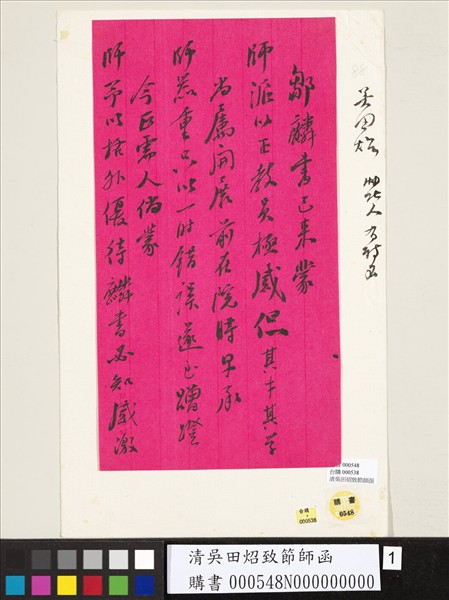 吳田炤
湖北人
鄒麟書已來蒙
師派以正教員極感佩其才其學
尚屬開展前在院時早承
師器重只以一時錯誤遂至蹭蹬
今正需人倘蒙
師予以格外優待麟書必知感激
000548
台購 000538
清吳田炤致節師函
台購
000538
購書
0548
清吳田炤致節師函
購書 000548N000000000
1